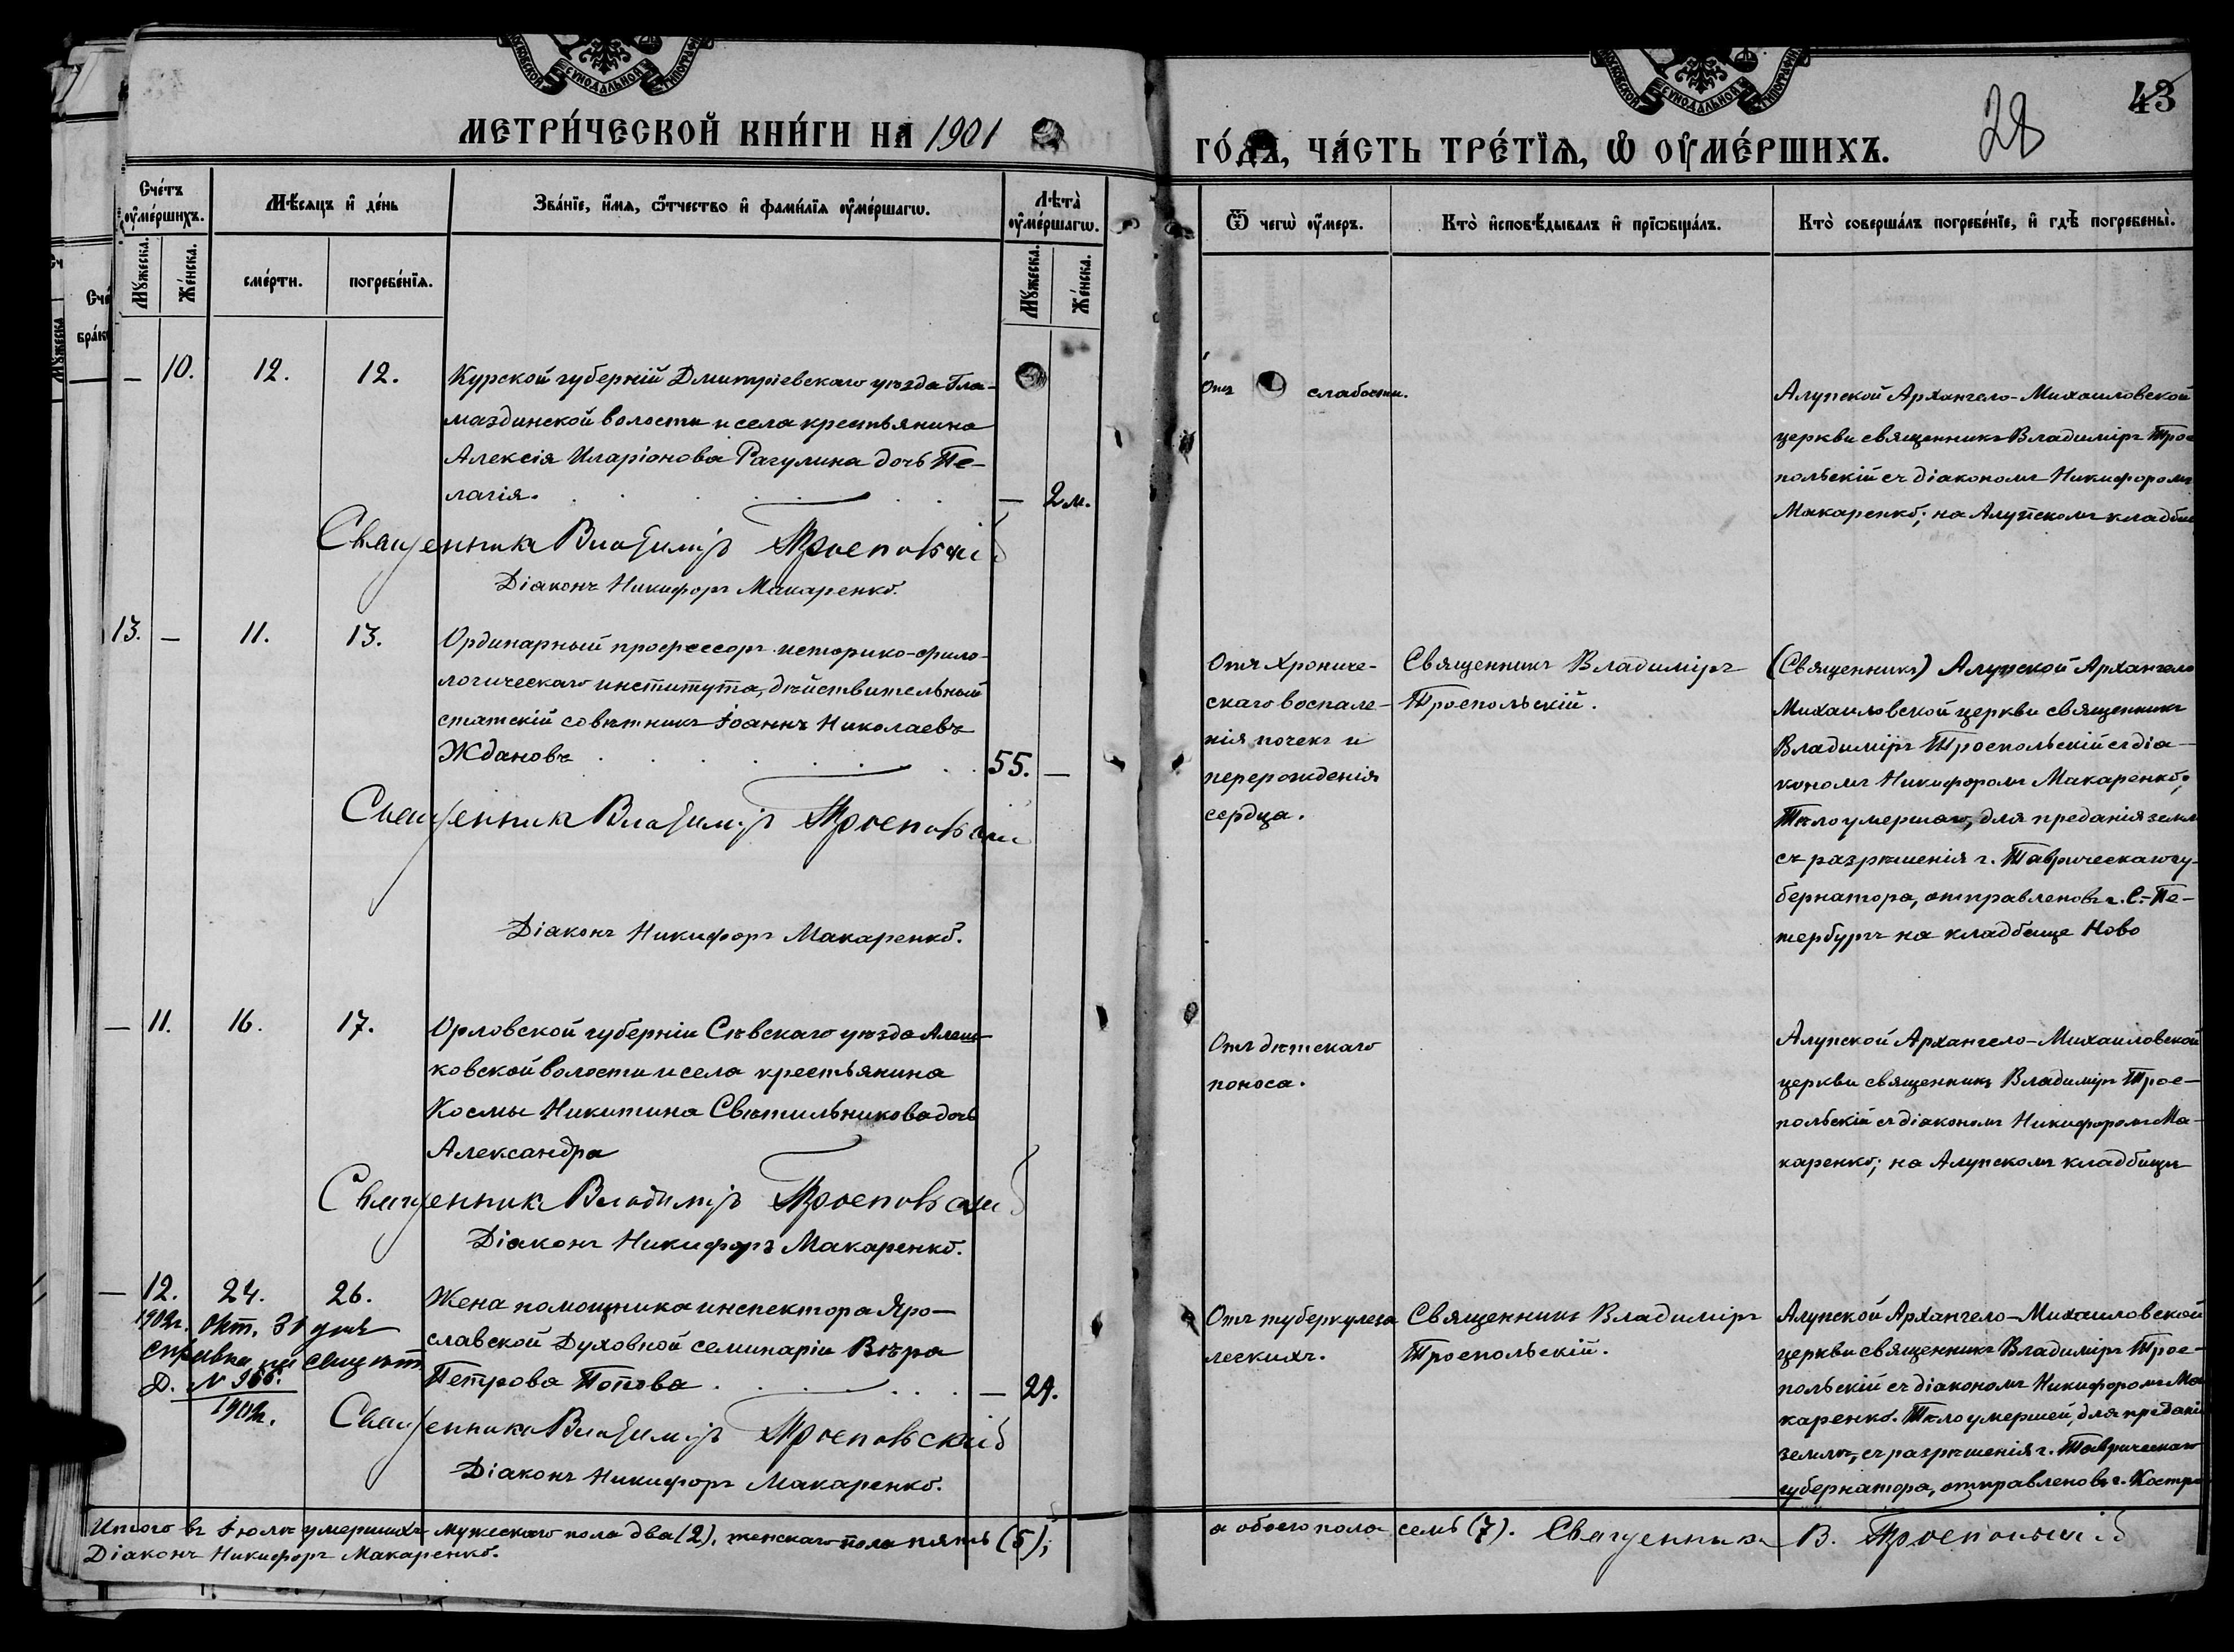 МОСКОВСКОЙ СѴНОДАЛЬНОЙ ТИПОГРАФІИ
МОСКОВСКОЙ СѴНОДАЛЬНОЙ ТИПОГРАФІИ
43
28
МЕТРИ́ЧЕСКОЙ КНИ́ГИ НА 1901
ГО́ДЪ, ЧА́СТЬ ТРЕ́ТЇѦ, Ѡ ОУ҆МЕ́РШИХЪ.
Сче́тъ оу҆ме́ршихъ.
Мѣ́сяцъ и҆ де́нь
Зва́нїе, и҆́мѧ, ѻ҆́тчество и҆ фами́лїѧ оу҆ме́ршагѡ.
Лѣ́та оу҆ме́ршагѡ.
Ѿ чегѡ̀ оу҆́меръ.
Кто̀ и҆сповѣ́дывалъ и҆ прїѡбща́лъ.
Кто̀ соверша́лъ погребе́нїе, и҆ гдѣ̀ погребены̀.
Мꙋ́жеска.
Же́нска.
сме́рти.
погребе́нїѧ.
Мꙋ́жеска.
Же́нска.
— 10. 12. 12.
Курской губерній Дмитріевскаго уѣзда Гла-
маздинской волости и села крестьянина
Алексія Иларіонова Рагулина дочь Пе-
лагія. — 2 м.
Священникъ Владиміръ Троепольскій
Діаконъ Никифоръ Макаренко.
Отъ слабости.
Алупской Архангело-Михаиловской
церкви священникъ Владиміръ Трое
польскій съ діакономъ Никифоромъ
Макаренко; на Алупскомъ кладби
13. — 11. 13.
Ординарный профессоръ историко-фило-
логическаго института, дѣйствительный
статскій совѣтникъ Іоаннъ Николаевъ
Ждановъ 55. —
Священникъ Владиміръ Троепольскій
Діаконъ Никифоръ Макаренко.
Отъ Хрониче-
скаго воспале-
нія почекъ и
перерожденія
сердца.
Священникъ Владиміръ
Троепольскій.
(Священникъ) Алупской Архангело
Михаиловской церкви священникъ
Владиміръ Троепольскій съ діа-
кономъ Никифоромъ Макаренко;
Тѣло умершаго, для преданія земл
съ разрѣшенія г. Таврическаго гу-
бернатора, отправлено въ г. С.-Пе-
тербургъ на кладбище Ново
— 11. 16. 17.
Орловской губерніи Сѣвскаго уѣзда Алеш-
ковской волости и села крестьянина
Космы Никитина Свѣтильникова дочь
Александра
Священникъ Владиміръ Троепольскій
Діаконъ Никифоръ Макаренко.
Отъ дѣтскаго
поноса.
Алупской Архангело-Михаиловской
церкви священникъ Владиміръ Трое-
польскій съ діакономъ Никифоромъ Ма-
каренко; на Алупскомъ кладбищѣ
— 12. 24. 26.
1902г. Окт. 31 дня
справка
Д. №
1902г.
Жена помощника инспектора Яро-
славской Духовной семинаріи Вѣра
Петрова Попова — 29.
Священникъ Владиміръ Троепольскій
Діаконъ Никифоръ Макаренко.
Отъ туберкулеза
легкихъ.
Священникъ Владиміръ
Троепольскій.
Алупской Архангело-Михаиловской
церкви священникъ Владиміръ Трое-
польскій съ діакономъ Никифоромъ Ма
каренко. Тѣло умершей, для преданія
землѣ, съ разрѣшенія г. Таврическаго
губернатора, отправлено въ г. Костро
Итого въ Іюлѣ умершихъ мужескаго пола два (2), женскаго пола пять (5);
а обоего пола семь (7). Священникъ В. Троепольскій
Діаконъ Никифоръ Макаренко.